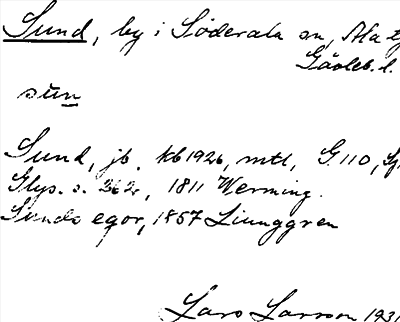 Sund, by i Söderala sn, Ala
Gävleb. l.
sun
Sund, jb, kb 1926, mtl, G. 110,
Glys. s. 262r, 1811 Werming.
Sunds egor, 1857 Ljunggren
Lars Larsson 1931